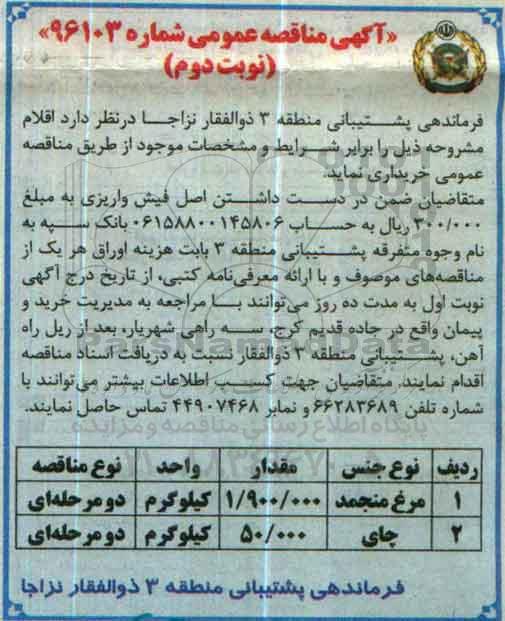 «آگهی مناقصه عمومی شماره ۹۶۱۰۳»
(نوبت دوم)
فرماندهی پشتیبانی منطقه ۳ ذوالفقار نزاجا درنظر دارد اقلام
مشروحه ذیل را برابر شرایط و مشخصات موجود از طریق مناقصه
عمومی خریداری نماید.
متقاضیان ضمن در دست داشتن اصل فیش واریزی به مبلغ
۳۰۰/۰۰۰ ریال به حساب ۰۶۱۵۸۸۰۰۱۴۵۸۰۶ بانک سپه به
نام وجوه متفرقه پشتیبانی منطقه ۳ بابت هزینه اوراق هر یک از
مناقصه‌های موصوف و با ارائه معرفی‌نامه کتبی، از تاریخ درج آگهی
نوبت اول به مدت ده روز می‌توانند با مراجعه به مدیریت خرید و
پیمان واقع در جاده قدیم کرج، سه راهی شهریار، بعد از ریل راه
آهن، پشتیبانی منطقه ۳ ذوالفقار نسبت به دریافت اسناد مناقصه
اقدام نمایند. متقاضیان جهت کسب اطلاعات بیشتر می‌توانند با
شماره تلفن ۶۶۲۸۳۶۸۹ و نمابر ۴۴۹۰۷۴۶۸ تماس حاصل نمایند.
ParsNamadData
پایگاه اطلاع رسانی مناقصه و مزایده
ردیف نوع جنس مقدار واحد نوع مناقصه
۱ مرغ منجمد ۱/۹۰۰/۰۰۰ کیلوگرم دو مرحله‌ای
۲ چای ۵۰/۰۰۰ کیلوگرم دو مرحله‌ای
فرماندهی پشتیبانی منطقه ۳ ذوالفقار نزاجا